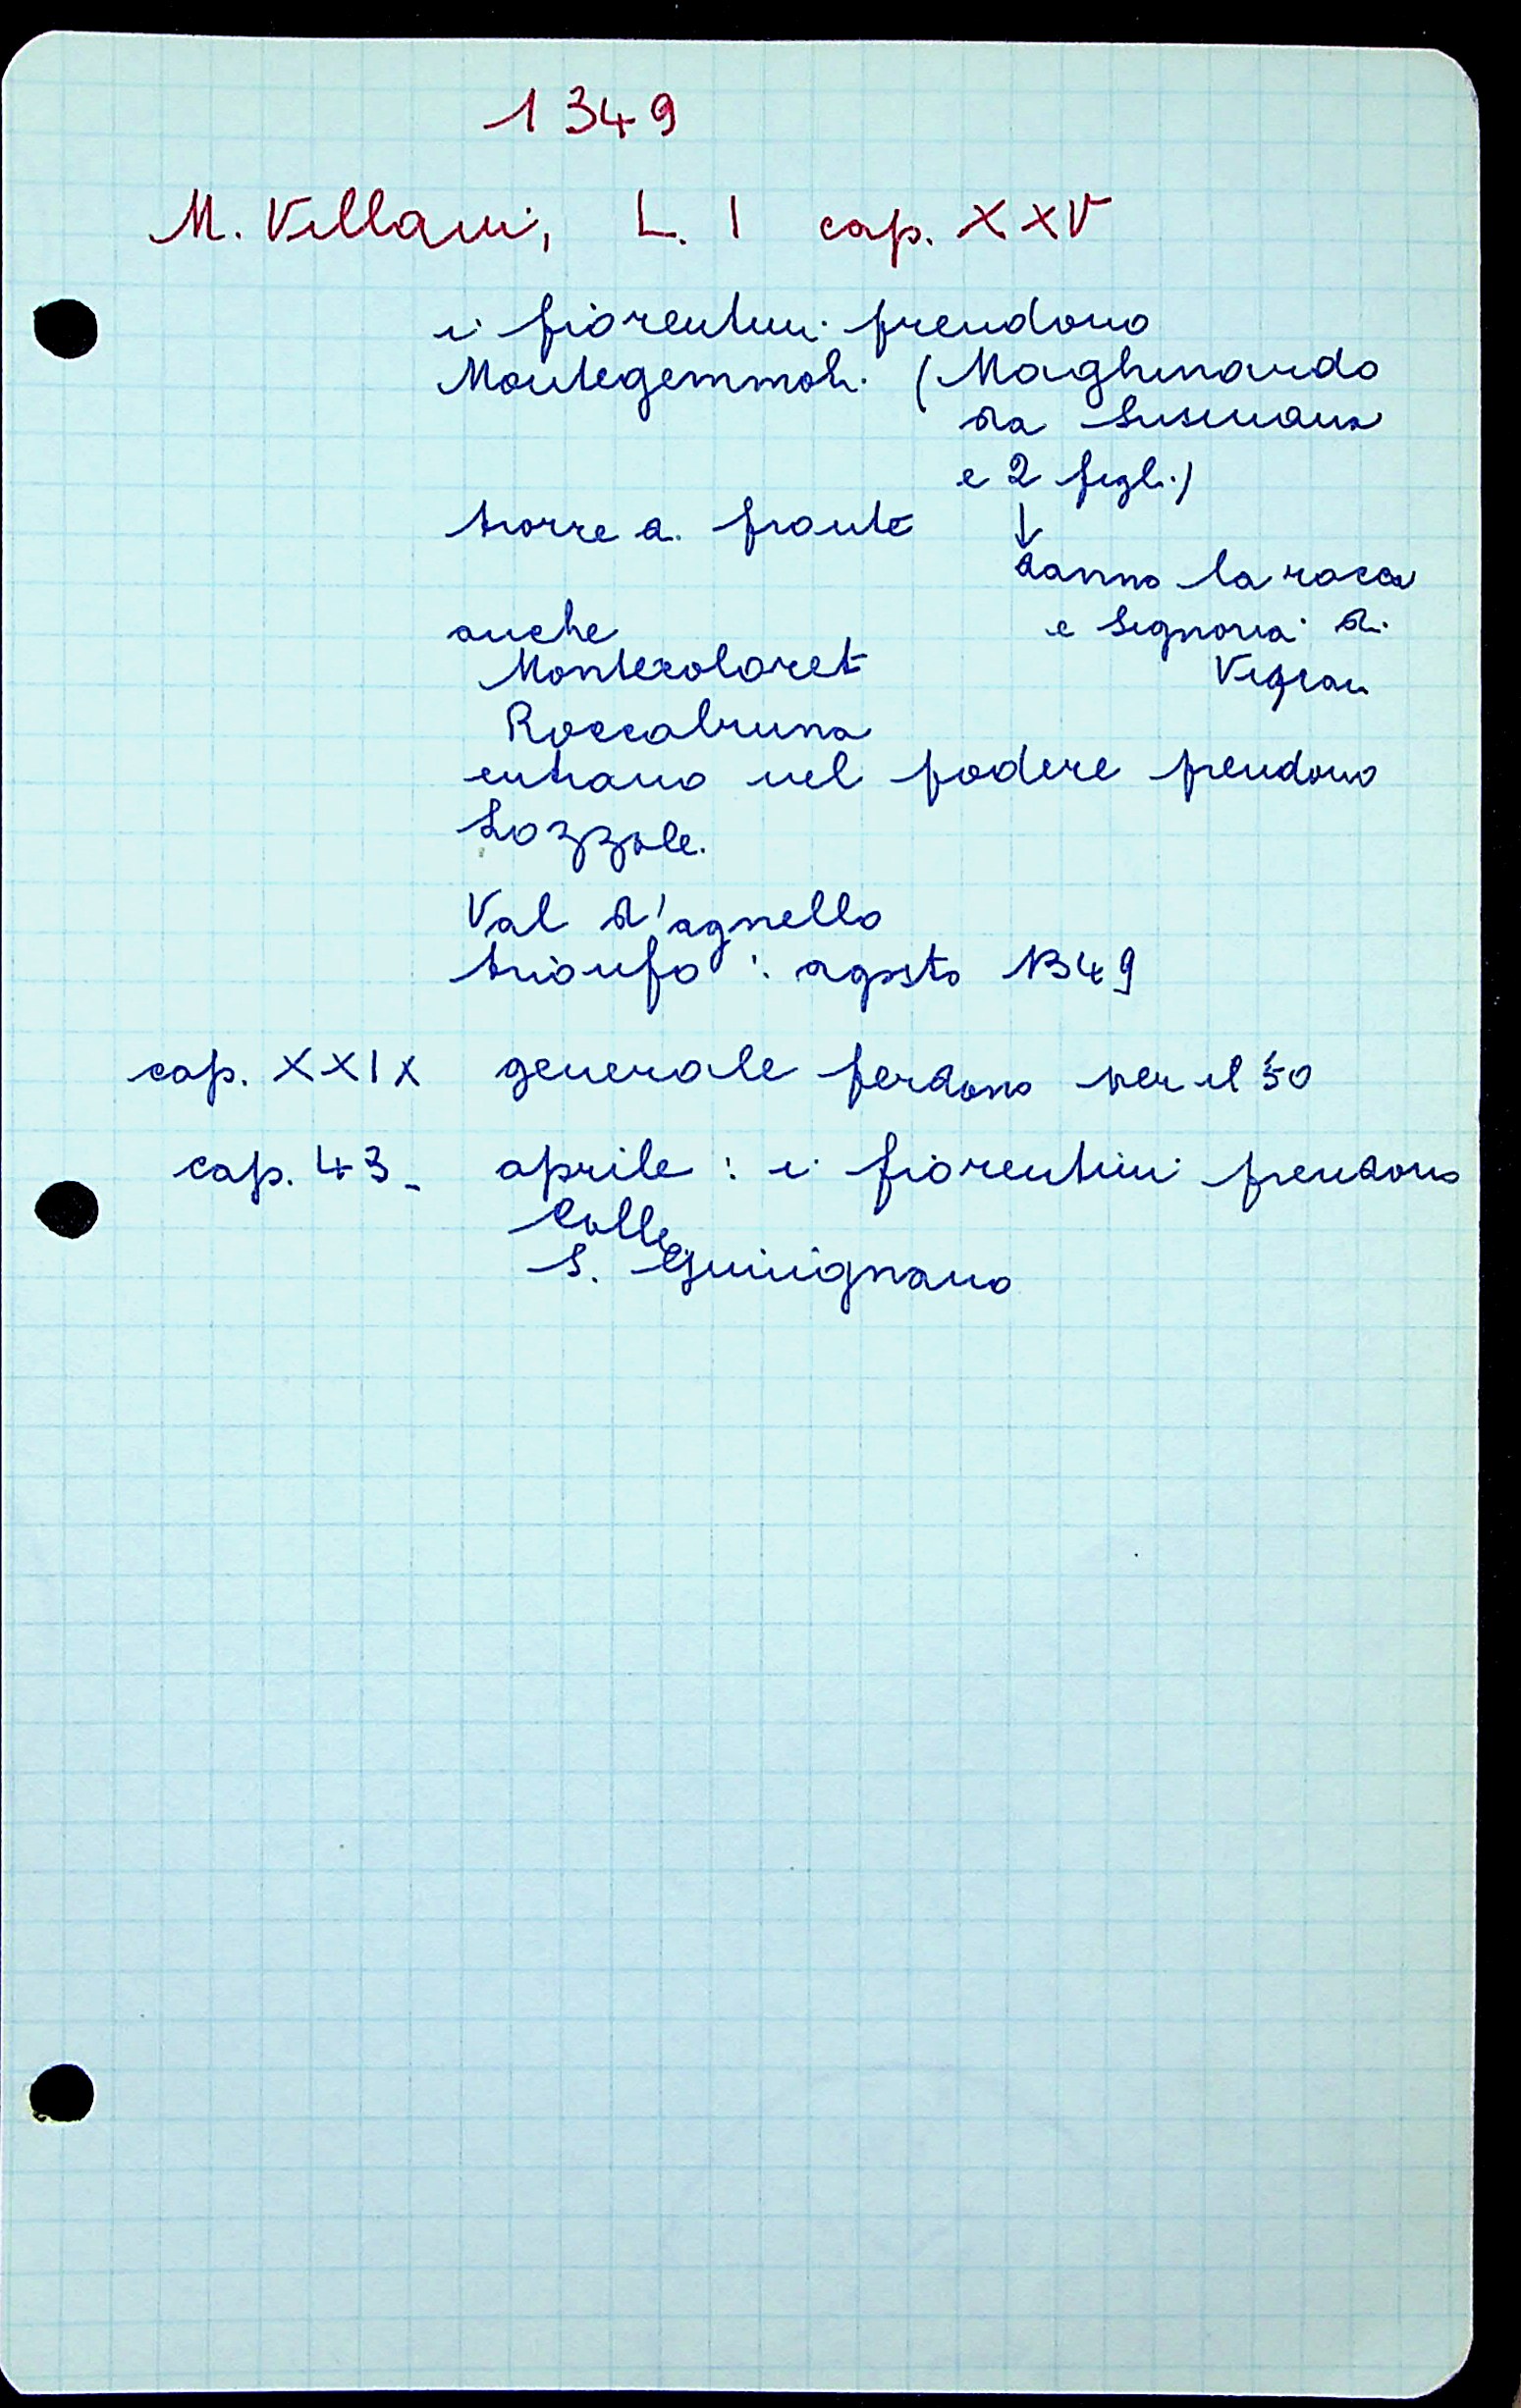 1349
M. Villani, L. I cap. XXV
i fiorentini prendono
Montegemmoli (Maghinardo
da Susinana
e 2 figli)
torre a fronte ↓
danno la rocca
anche e signoria di
Montecoloret
Roccabruna
entrano nel podere prendono
Lozzole.
Val d'agnello
trionfo : agosto 1349
cap. XXIX generale perdono per il 50
cap. 43_ aprile : i fiorentini prendono
Colle
S. Gimignano